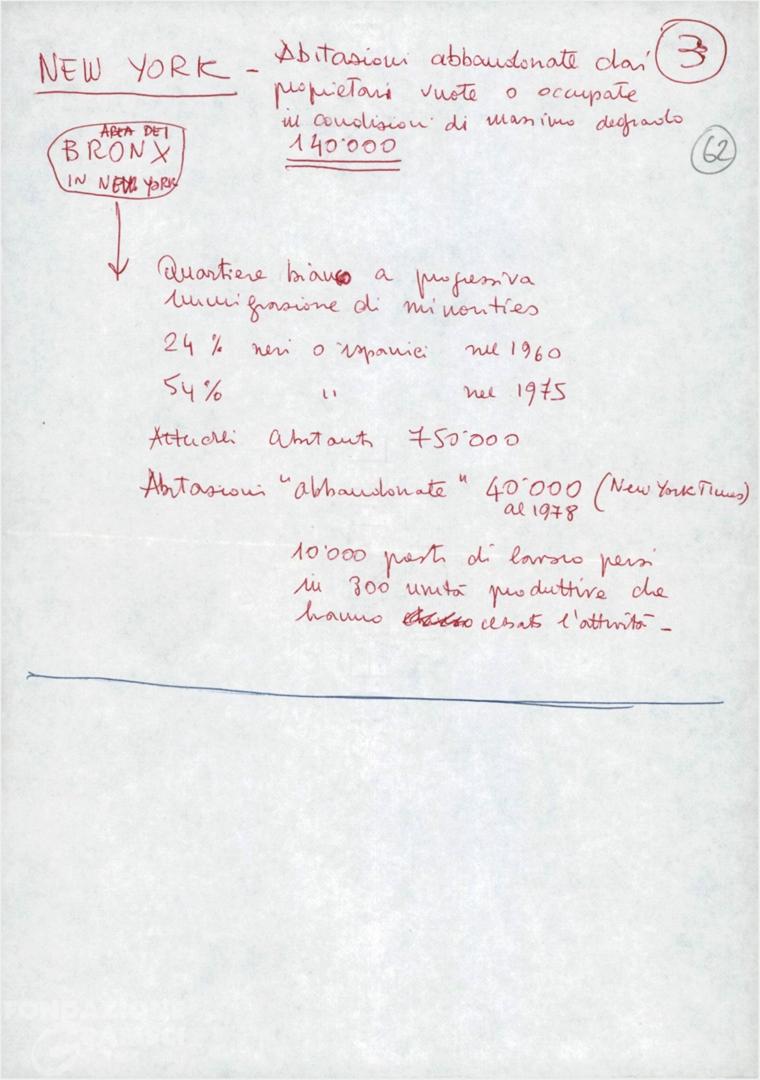 3
NEW YORK - Abitazioni abbandonate dai
proprietari vuote o occupate
in condizioni di massimo degrado
140'000
62
AREA DEL
BRONX
IN NEW YORK
Quartiere bianco a progressiva
immigrazione di minorities
24 % neri o ispanici nel 1960
54 % " nel 1975
Attuali abitanti 750'000
Abitazioni "abbandonate" 40'000 (New York Times)
al 1978
10'000 posti di lavoro persi
in 300 unità produttive che
hanno cessato l'attività -
FONDAZIONE
GRAMSCI